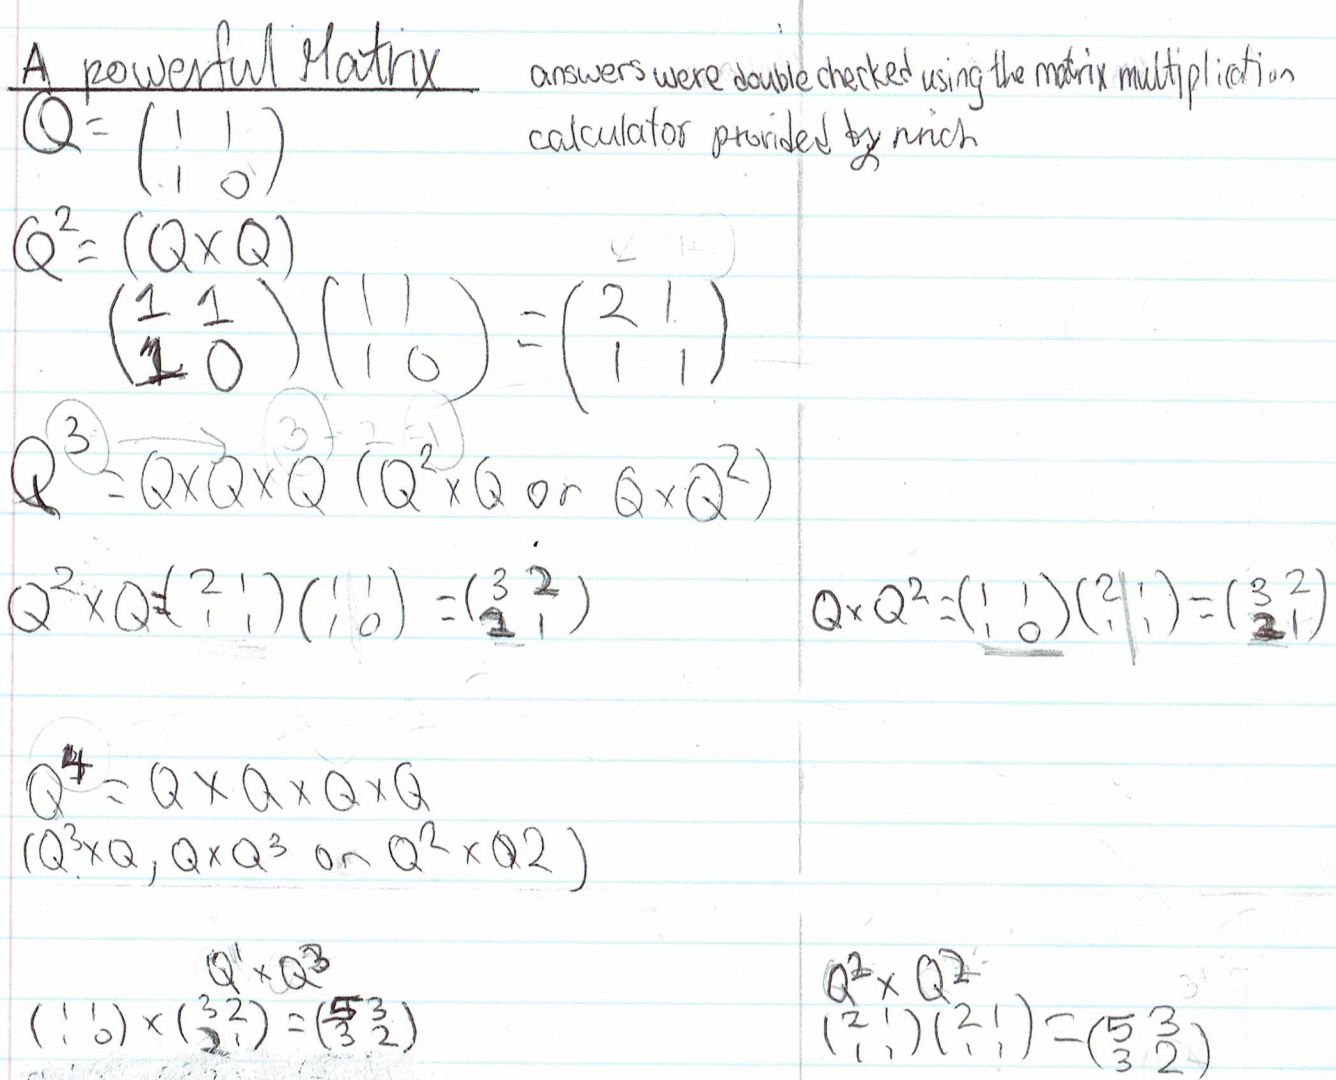 A powerful Matrix
answers were double checked using the matrix multiplication
calculator provided by nrich
Q = (1 1
1 0)
Q² = (Q×Q)
(1 1
1 0) (1 1
1 0) = (2 1
1 1)
Q³ = Q×Q×Q (Q²×Q or Q×Q²)
Q²×Q = (2 1
1 1) (1 1
1 0) = (3 2
2 1)
Q×Q² = (1 1
1 0) (2 1
1 1) = (3 2
2 1)
Q⁴ = Q×Q×Q×Q
(Q³×Q, Q×Q³ or Q²×Q2)
Q¹×Q³
(1 1
1 0) × (3 2
2 1) = (5 3
3 2)
Q²×Q²
(2 1
1 1) (2 1
1 1) = (5 3
3 2)